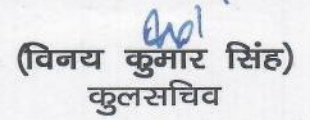 (विनय कुमार सिंह)
कुलसचिव